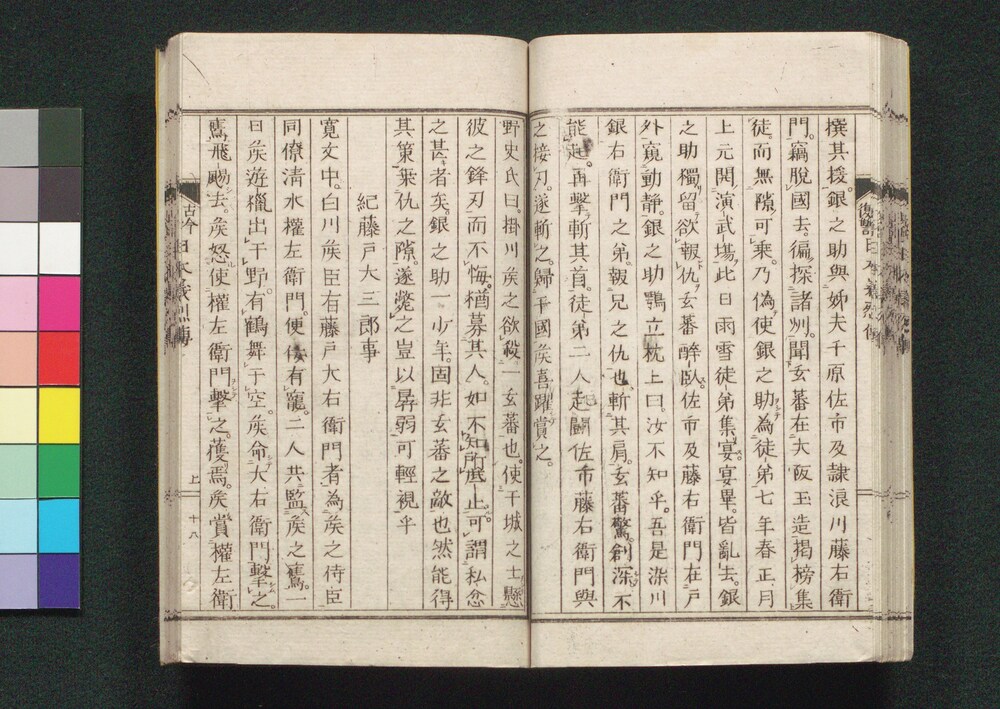 撰其接。銀之助與姊夫千原佐市及隷浪川藤右衛
門。竊脫國去。徧探諸州。聞玄蕃在大阪玉造揭榜集
徒。而無隙可乗。乃偽使銀之助為徒弟七年春正月
上元開演武場。此日雨雪徒弟集宴。宴畢。皆亂去。銀
之助獨留欲報仇。玄蕃醉臥。佐市及藤右衛門在戶
外窺動靜。銀之助鶚立枕上曰。汝不知乎。吾是染川
銀右衛門之弟。報兄之仇也。斬其肩。玄蕃驚。創深。不
能起。再擊斬其首。徒弟二人起鬪佐市藤右衛門與
之接刃。遂斬之。歸于國矦喜躍賞之。
野史氏曰。掛川矦之欲殺一玄蕃也。使干城之士懸
彼之鋒刃而不悔。猶募其人。如不知所底止。可謂私忿
之甚者矣。銀之助一少年。固非玄蕃之敵也然能得
其策。乗仇之隙。遂斃之豈以孱弱可輕視乎
紀藤戶大三郎事
寛文中。白川矦臣有藤戶大右衛門者為矦之侍臣
同僚清水權左衛門。便佞有寵。二人共監矦之鷹。一
日矦遊獵出于野。有鶴舞于空。矦命大右衛門擊之。
鷹飛颺去。矦怒使權左衛門擊之。獲焉。矦賞權左衛
古今日本義烈傳
上
十八